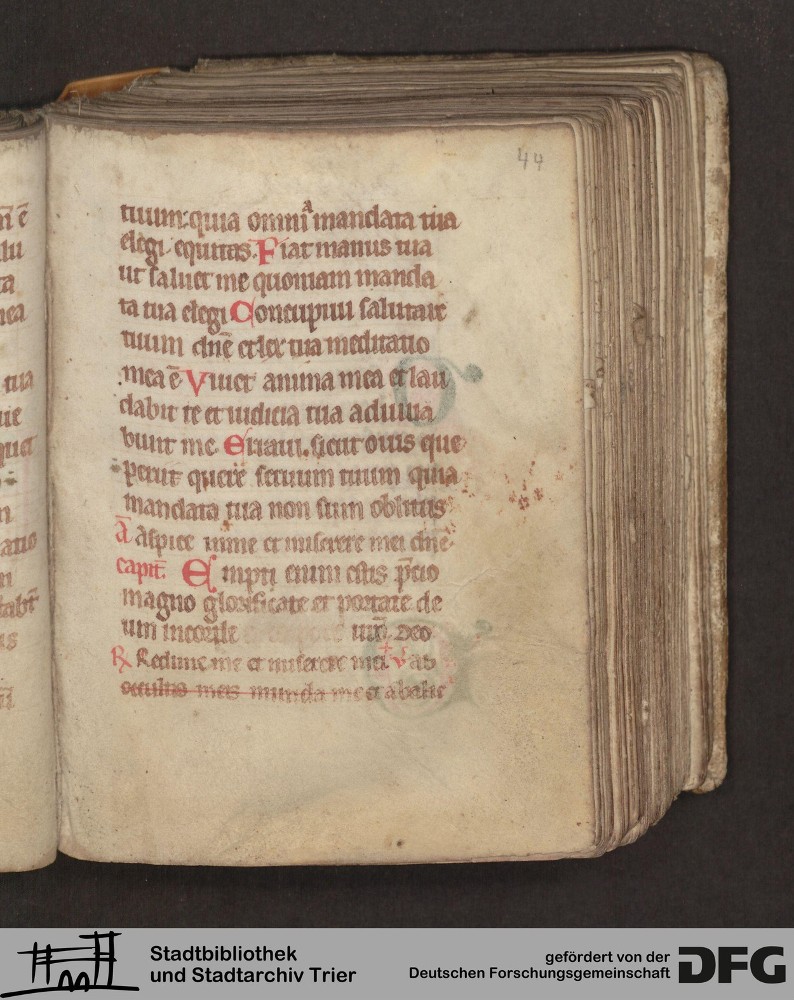 44
tuum: quia omniᵃ mandata tua
elegi equitas. Fiat manus tua
ut saluet me quoniam manda
ta tua elegi Concupiui salutare
tuum dn̄e et lex tua meditatio
mea ē Viuet anima mea et lau
dabit te et iudicia tua adiuua
bunt me Erraui. sicut ouis que
periit querē seruum tuum quia
mandata tua non sum oblitus
ā aspice in me et miserere mei dn̄e
capit̄. Empti enim estis p̄cio
magno glorificate et portate de
um in corꝑe uīr̄. Deo
℟ Redime me et miserere mei ℣ Ab
occultis meis munda me et ab alie
Stadtbibliothek
und Stadtarchiv Trier
gefördert von der
Deutschen Forschungsgemeinschaft
DFG